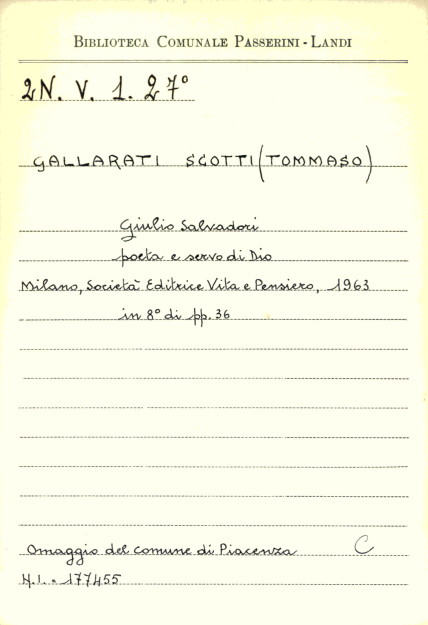 BIBLIOTECA COMUNALE PASSERINI - LANDI
2N. V. 1. 27°
GALLARATI SCOTTI (TOMMASO)
Giulio Salvadori
poeta e servo di Dio
Milano, Società Editrice Vita e Pensiero, 1963
in 8° di pp. 36
Omaggio del comune di Piacenza C
N.I. = 177455